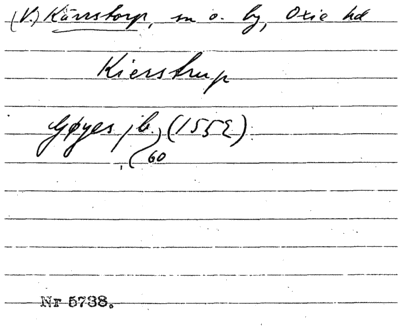 (V.) Kärrstorp, sn o. by, Oxie hd
Kierstrup
Gøyes jb. (1552)
60
Nr 5738.